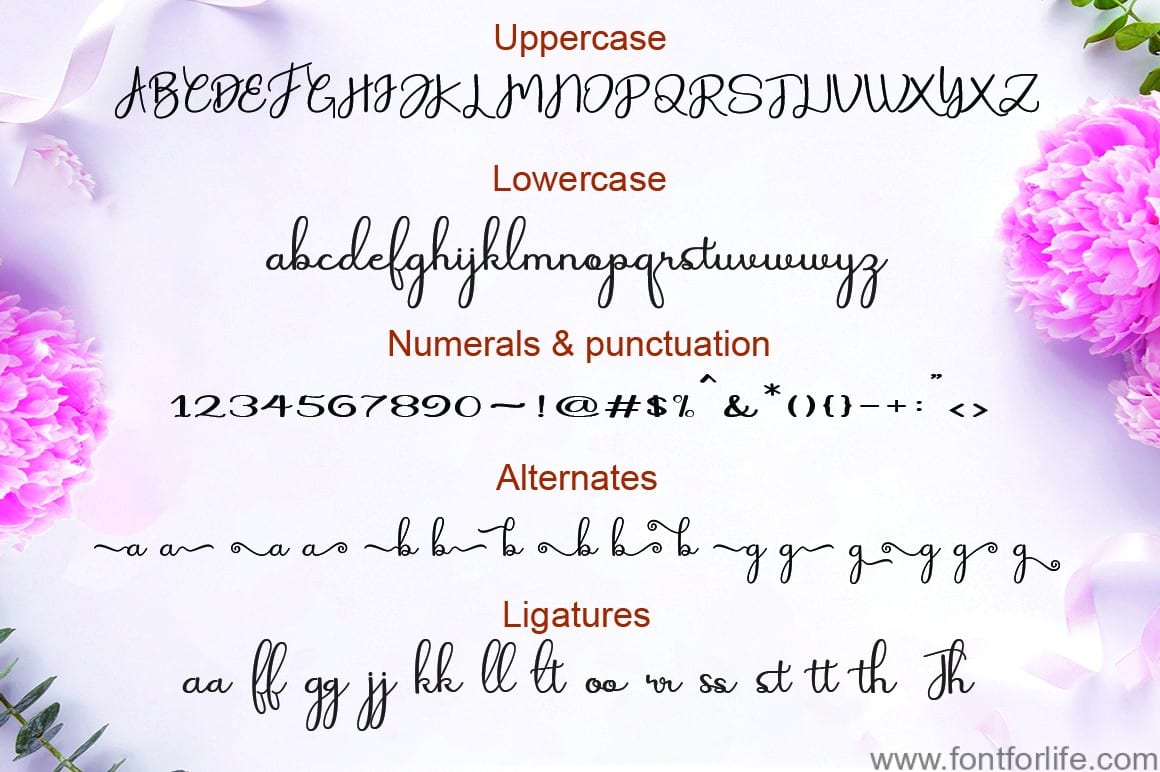 Uppercase
ABCDEFGHIJKLMNOPQRSTUVWXYXZ
Lowercase
abcdefghijklmnopqrstuvwwyz
Numerals & punctuation
1234567890~!@#$%^&*(){}-+:"<>
Alternates
a a a a b b b b b b g g g g g g
Ligatures
aa ff gg jj kk ll lt oo rr ss st tt th Th
www.fontforlife.com